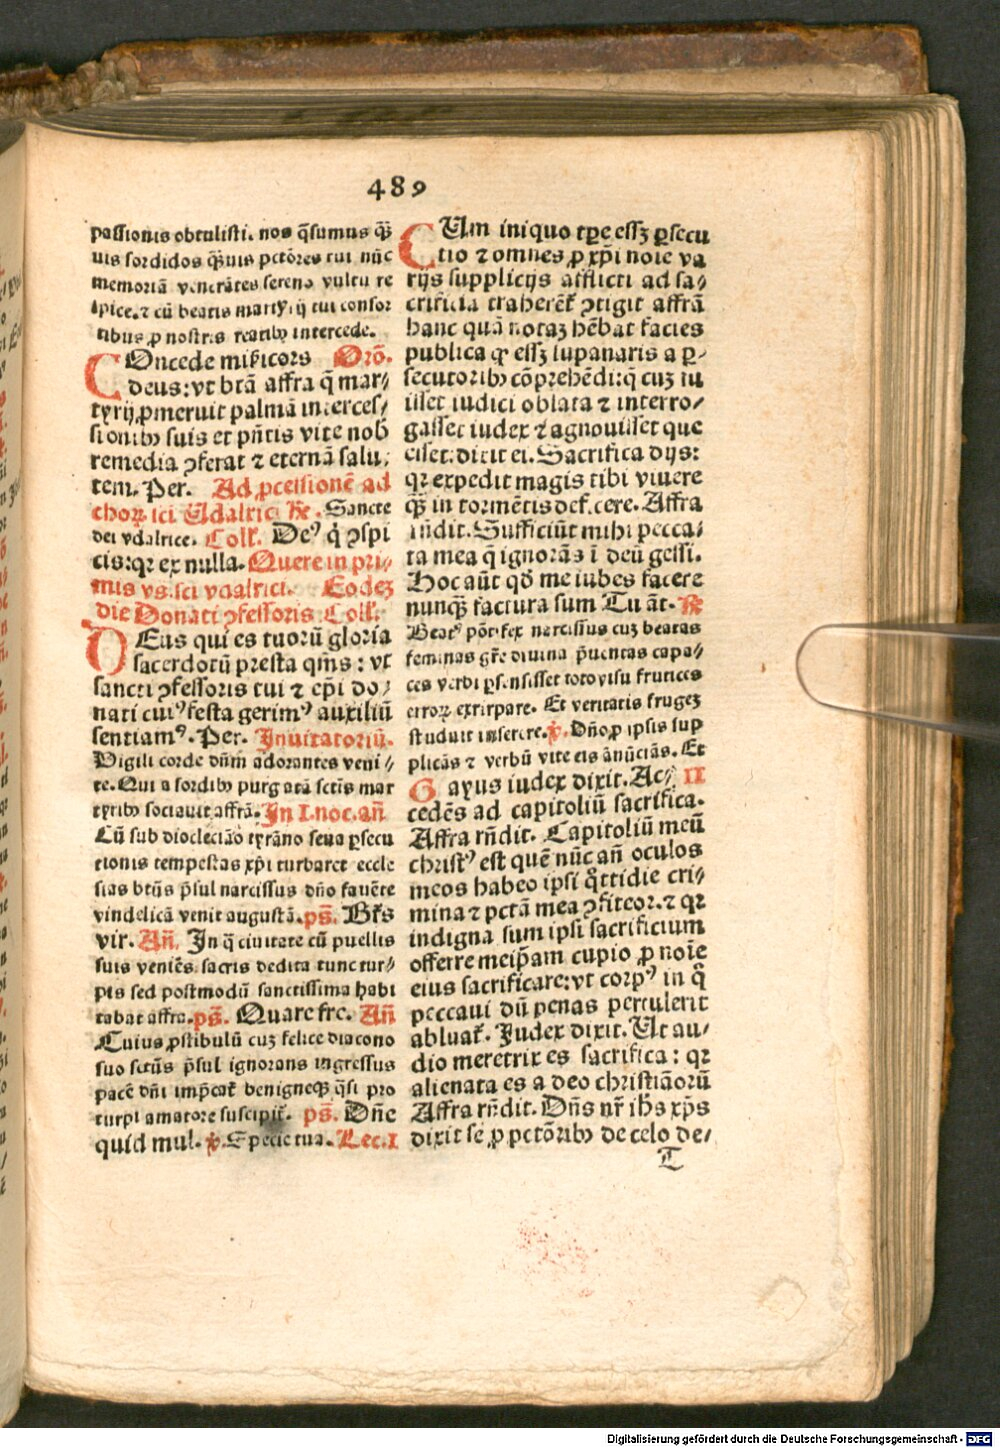 489
passionis obtulisti. nos q̄sumus q̄ꝫ
uis sordidos q̄ꝫuis pctōres tui nūc
memoriā venerātes sereno vultu re
spice. ⁊ cū beatis martyrij tui consor
tibus ꝓ nostris reatibꝰ intercede.
COncede miẜicors Orō.
deus: vt btā affra q̄ mar⸗
tyrij ꝓmeruit palmā interces⸗
sionibꝰ suis et pn̄tis vite nob̄
remedia ꝯferat ⁊ eternā salu⸗
tem. Per. Ad ꝓcessionē ad
chorꝫ sci Udalrici ℟. Sancte
dei vdalrice. Coll. Deꝰ q̇ ꝯspi
cis: qꝛ ex nulla. Quere in pri⸗
mis vs. sci vdalrici. Eodeꝫ
die Donati ꝯfessoris Coll.
DEus qui es tuorū gloria
sacerdotū presta qm̄s: vt
sancti ꝯfessoris tui ⁊ ep̄i do⸗
nati cuiꝰ festa gerimꝰ auxiliū
sentiamꝰ. Per. Inuitatoriū.
Vigili corde dn̄m adorantes veni⸗
te. Qui a sordibꝰ purgatā sctis mar
tyribꝰ sociauit affrā. In I. noc. an̄
Cū sub diocleciāo tyrāno seua ꝑsecu
tionis tempestas xp̄i turbaret eccle
sias btūs p̄sul narcissus dn̄o fauēte
vindelicā venit augustā. ps̄. Bt̄s
vir. An̄. In q̄ ciuitate cū puellis
suis veniēs sacris dedita tunc tur⸗
pis sed postmodū sanctissima habi
tabat affra. ps̄. Quare fre. An̄
Cuius ꝓstibulū cuꝫ felice diacono
suo sctūs p̄sul ignorans ingressus
pacē dn̄i imp̄cat̄ benigneqꝫ q̄si pro
turpi amatore suscipit̄. ps̄. Dn̄e
quid mul. ℣. Specie tua. Lec. I
CUm iniquo tꝑe essꝫ ꝑsecu
tio ⁊ omnes ꝓ xp̄i noīe va
rijs supplicijs afflicti ad sa⸗
crificia traherēt̄ ꝯtigit affrā
hanc quā notaꝫ hēbat facies
publica qꝙ essꝫ lupanaris a ꝑ⸗
secutoribꝰ cōprehēdi: q̄ cuꝫ fu
isset iudici oblata ⁊ interro⸗
gasset iudex ⁊ agnouisset que
esset: dicit ei. Sacrifica dijs:
qꝛ expedit magis tibi viuere
qꝫ̄ in tormētis deficere. Affra
rn̄dit. Sufficiūt mihi pecca⸗
ta mea q̄ ignorās ī deū gessi.
Hoc aūt qd̄ me iubes facere
nunqꝫ̄ factura sum Tu āt. ℟
Beatꝰ pōtifex narcissus cuꝫ beatas
feminas gr̄e diuina p̄uentas capa⸗
ces verbi ꝑsensisset toto visu frutices
errorꝫ extirpare. Et veritatis frugeꝫ
studuit inserere. ℣. Dn̄o ꝓ ipsis sup
plicās ⁊ verbū vite eis ānūciās. Et
Gayus iudex dixit. Ac⸗ II
cedēs ad capitoliū sacrifica.
Affra rn̄dit. Capitoliū meū
christꝰ est quē nūc an̄ oculos
meos habeo ipsi q̇ttidie cri⸗
mina ⁊ pctā mea ꝯfiteor. ⁊ qꝛ
indigna sum ipsi sacrificium
offerre meip̄am cupio ꝓ noīe
eius sacrificare: vt corpꝰ in q̄
peccaui dū penas pertulerit
abluat̄. Judex dixit. Ut au⸗
dio meretrix es sacrifica: qꝛ
alienata es a deo christiāorū
Affra rn̄dit. Dn̄s nr̄ ih̄s xp̄s
dixit se ꝓ pctōribꝰ de celo de⸗
T
Digitalisierung gefördert durch die Deutsche Forschungsgemeinschaft - DFG